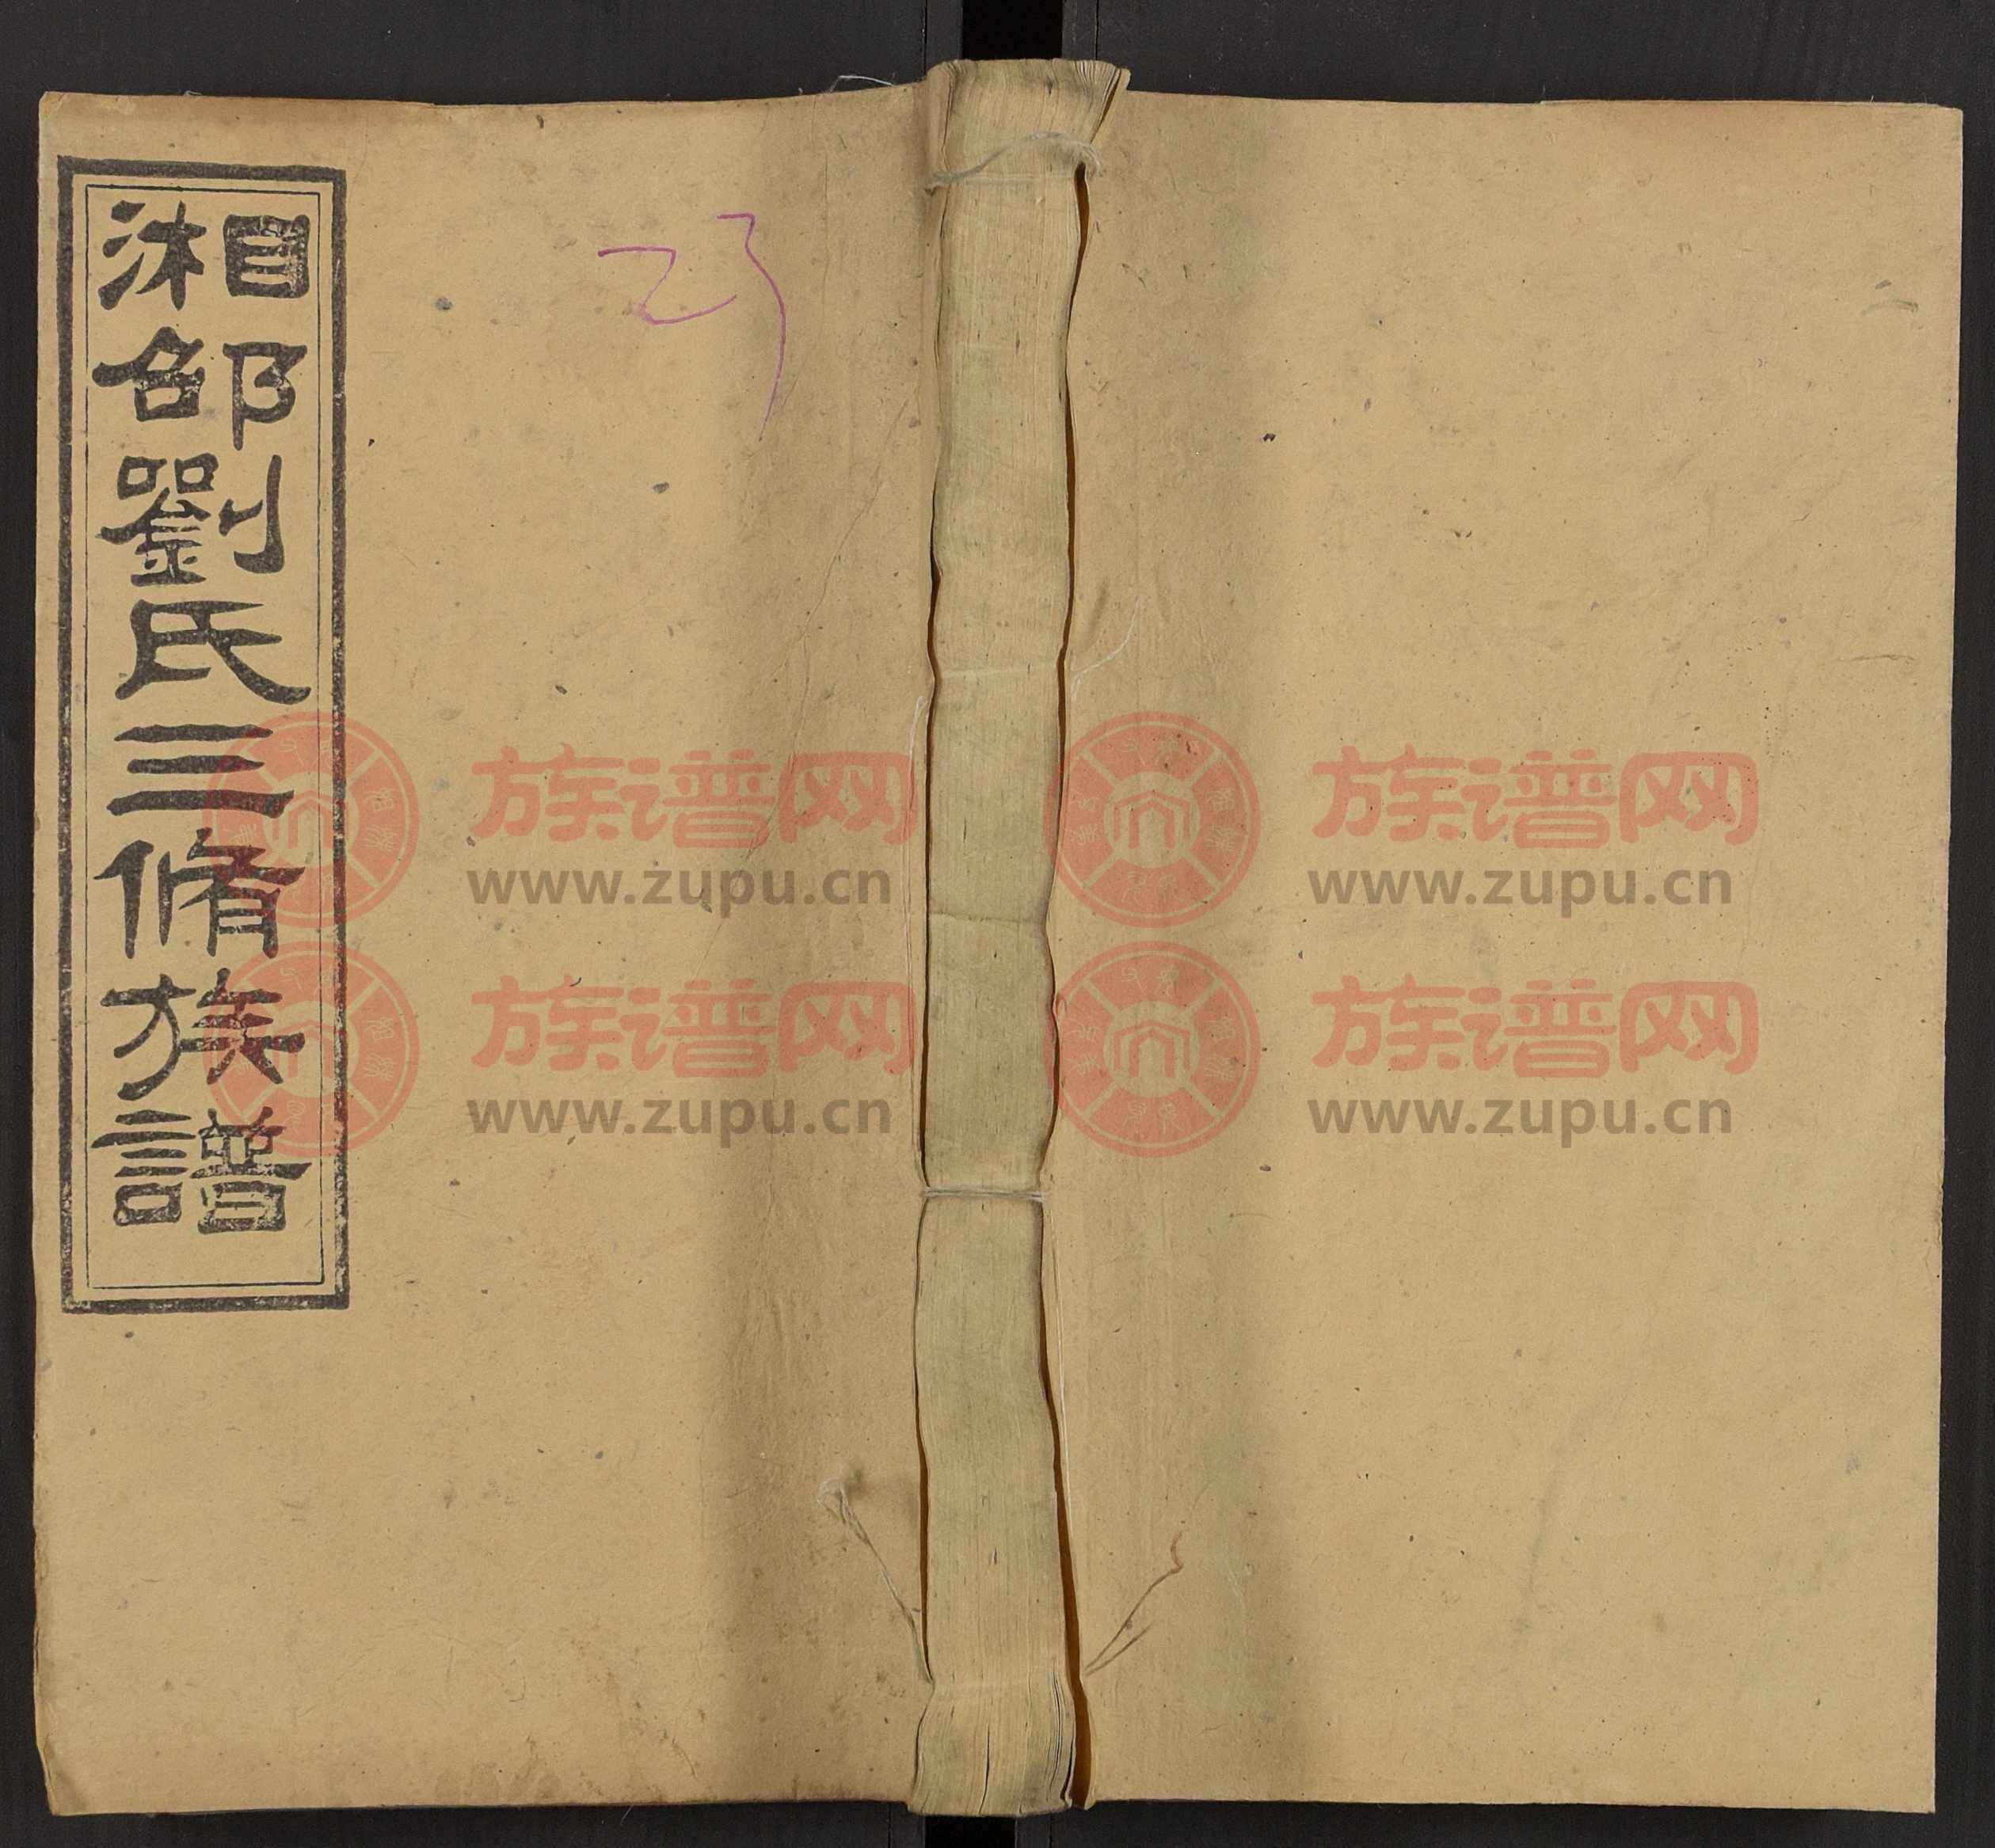 湘邵劉氏三脩族譜
23
族谱网
www.zupu.cn
族谱网
www.zupu.cn
族谱网
www.zupu.cn
族谱网
www.zupu.cn